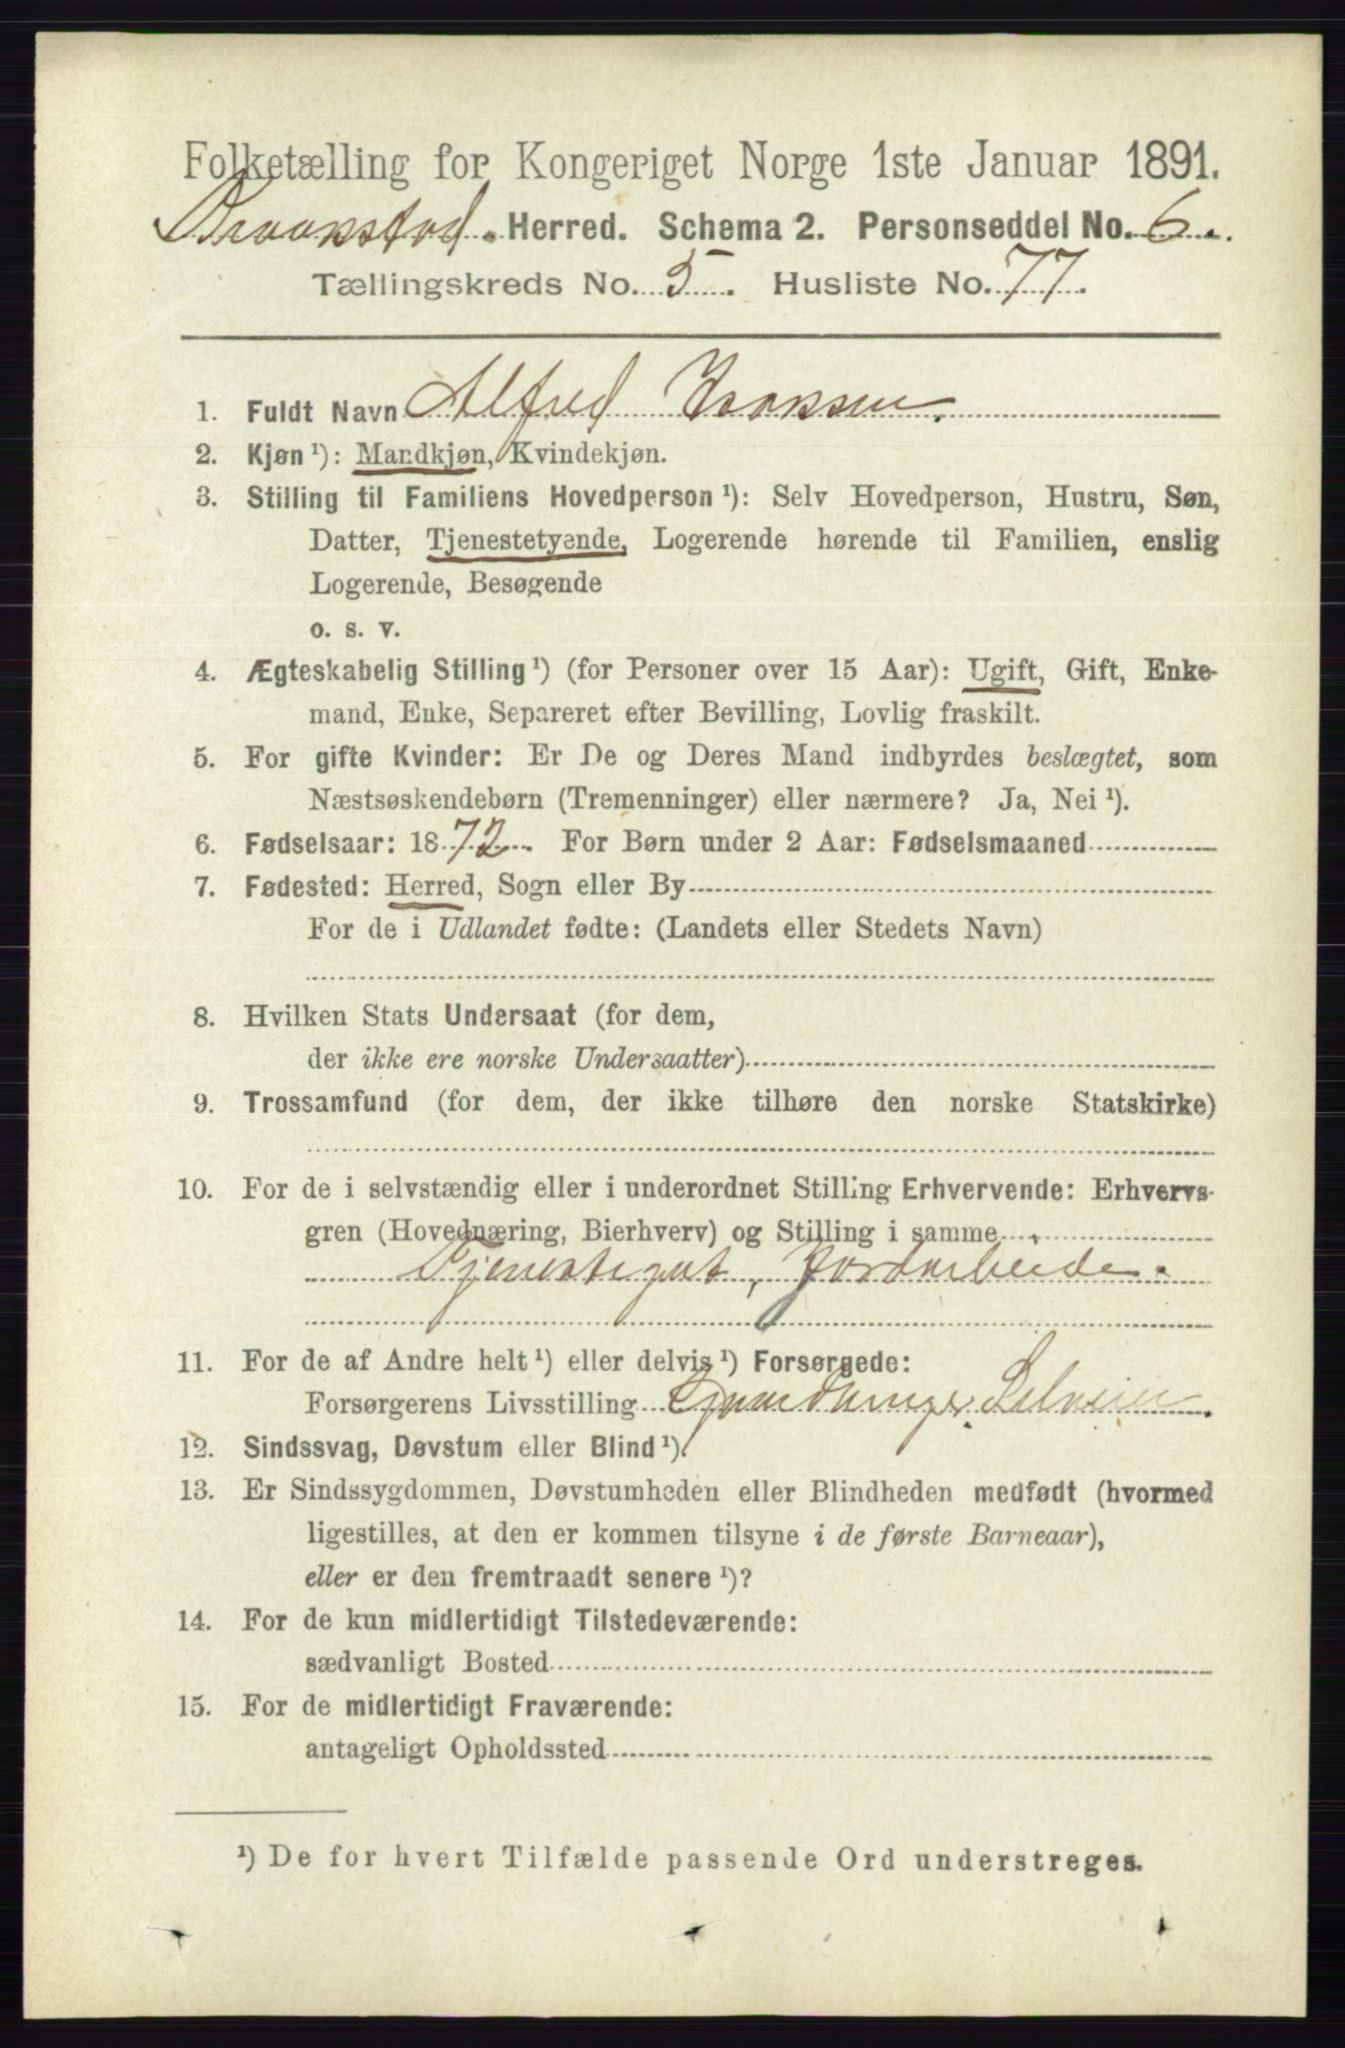 Folketælling for Kongeriget Norge 1ste Januar 1891.
Herred. Schema 2. Personseddel No. 6.
Tællingskreds No. 5. Husliste No. 77.
1. Fuldt Navn Alfred Isaksen.
2. Kjøn ¹): Mandkjøn, Kvindekjøn.
3. Stilling til Familiens Hovedperson ¹): Selv Hovedperson, Hustru, Søn,
Datter, Tjenestetyende, Logerende hørende til Familien, enslig
Logerende, Besøgende
o. s. v.
4. Ægteskabelig Stilling ¹) (for Personer over 15 Aar): Ugift, Gift, Enke-
mand, Enke, Separeret efter Bevilling, Lovlig fraskilt.
5. For gifte Kvinder: Er De og Deres Mand indbyrdes beslægtet, som
Næstsøskendebørn (Tremenninger) eller nærmere? Ja, Nei ¹).
6. Fødselsaar: 1872. For Børn under 2 Aar: Fødselsmaaned
7. Fødested: Herred, Sogn eller By
For de i Udlandet fødte: (Landets eller Stedets Navn)
8. Hvilken Stats Undersaat (for dem,
der ikke ere norske Undersaatter)
9. Trossamfund (for dem, der ikke tilhøre den norske Statskirke)
10. For de i selvstændig eller i underordnet Stilling Erhvervende: Erhvervs-
gren (Hovednæring, Bierhverv) og Stilling i samme
Tjenestegut, Jordarbeide.
11. For de af Andre helt ¹) eller delvis ¹) Forsørgede:
Forsørgerens Livsstilling Gaardbruger, Selveier.
12. Sindssvag, Døvstum eller Blind ¹).
13. Er Sindssygdommen, Døvstumheden eller Blindheden medfødt (hvormed
ligestilles, at den er kommen tilsyne i de første Barneaar),
eller er den fremtraadt senere ¹)?
14. For de kun midlertidigt Tilstedeværende:
sædvanligt Bosted
15. For de midlertidigt Fraværende:
antageligt Opholdssted
¹) De for hvert Tilfælde passende Ord understreges.